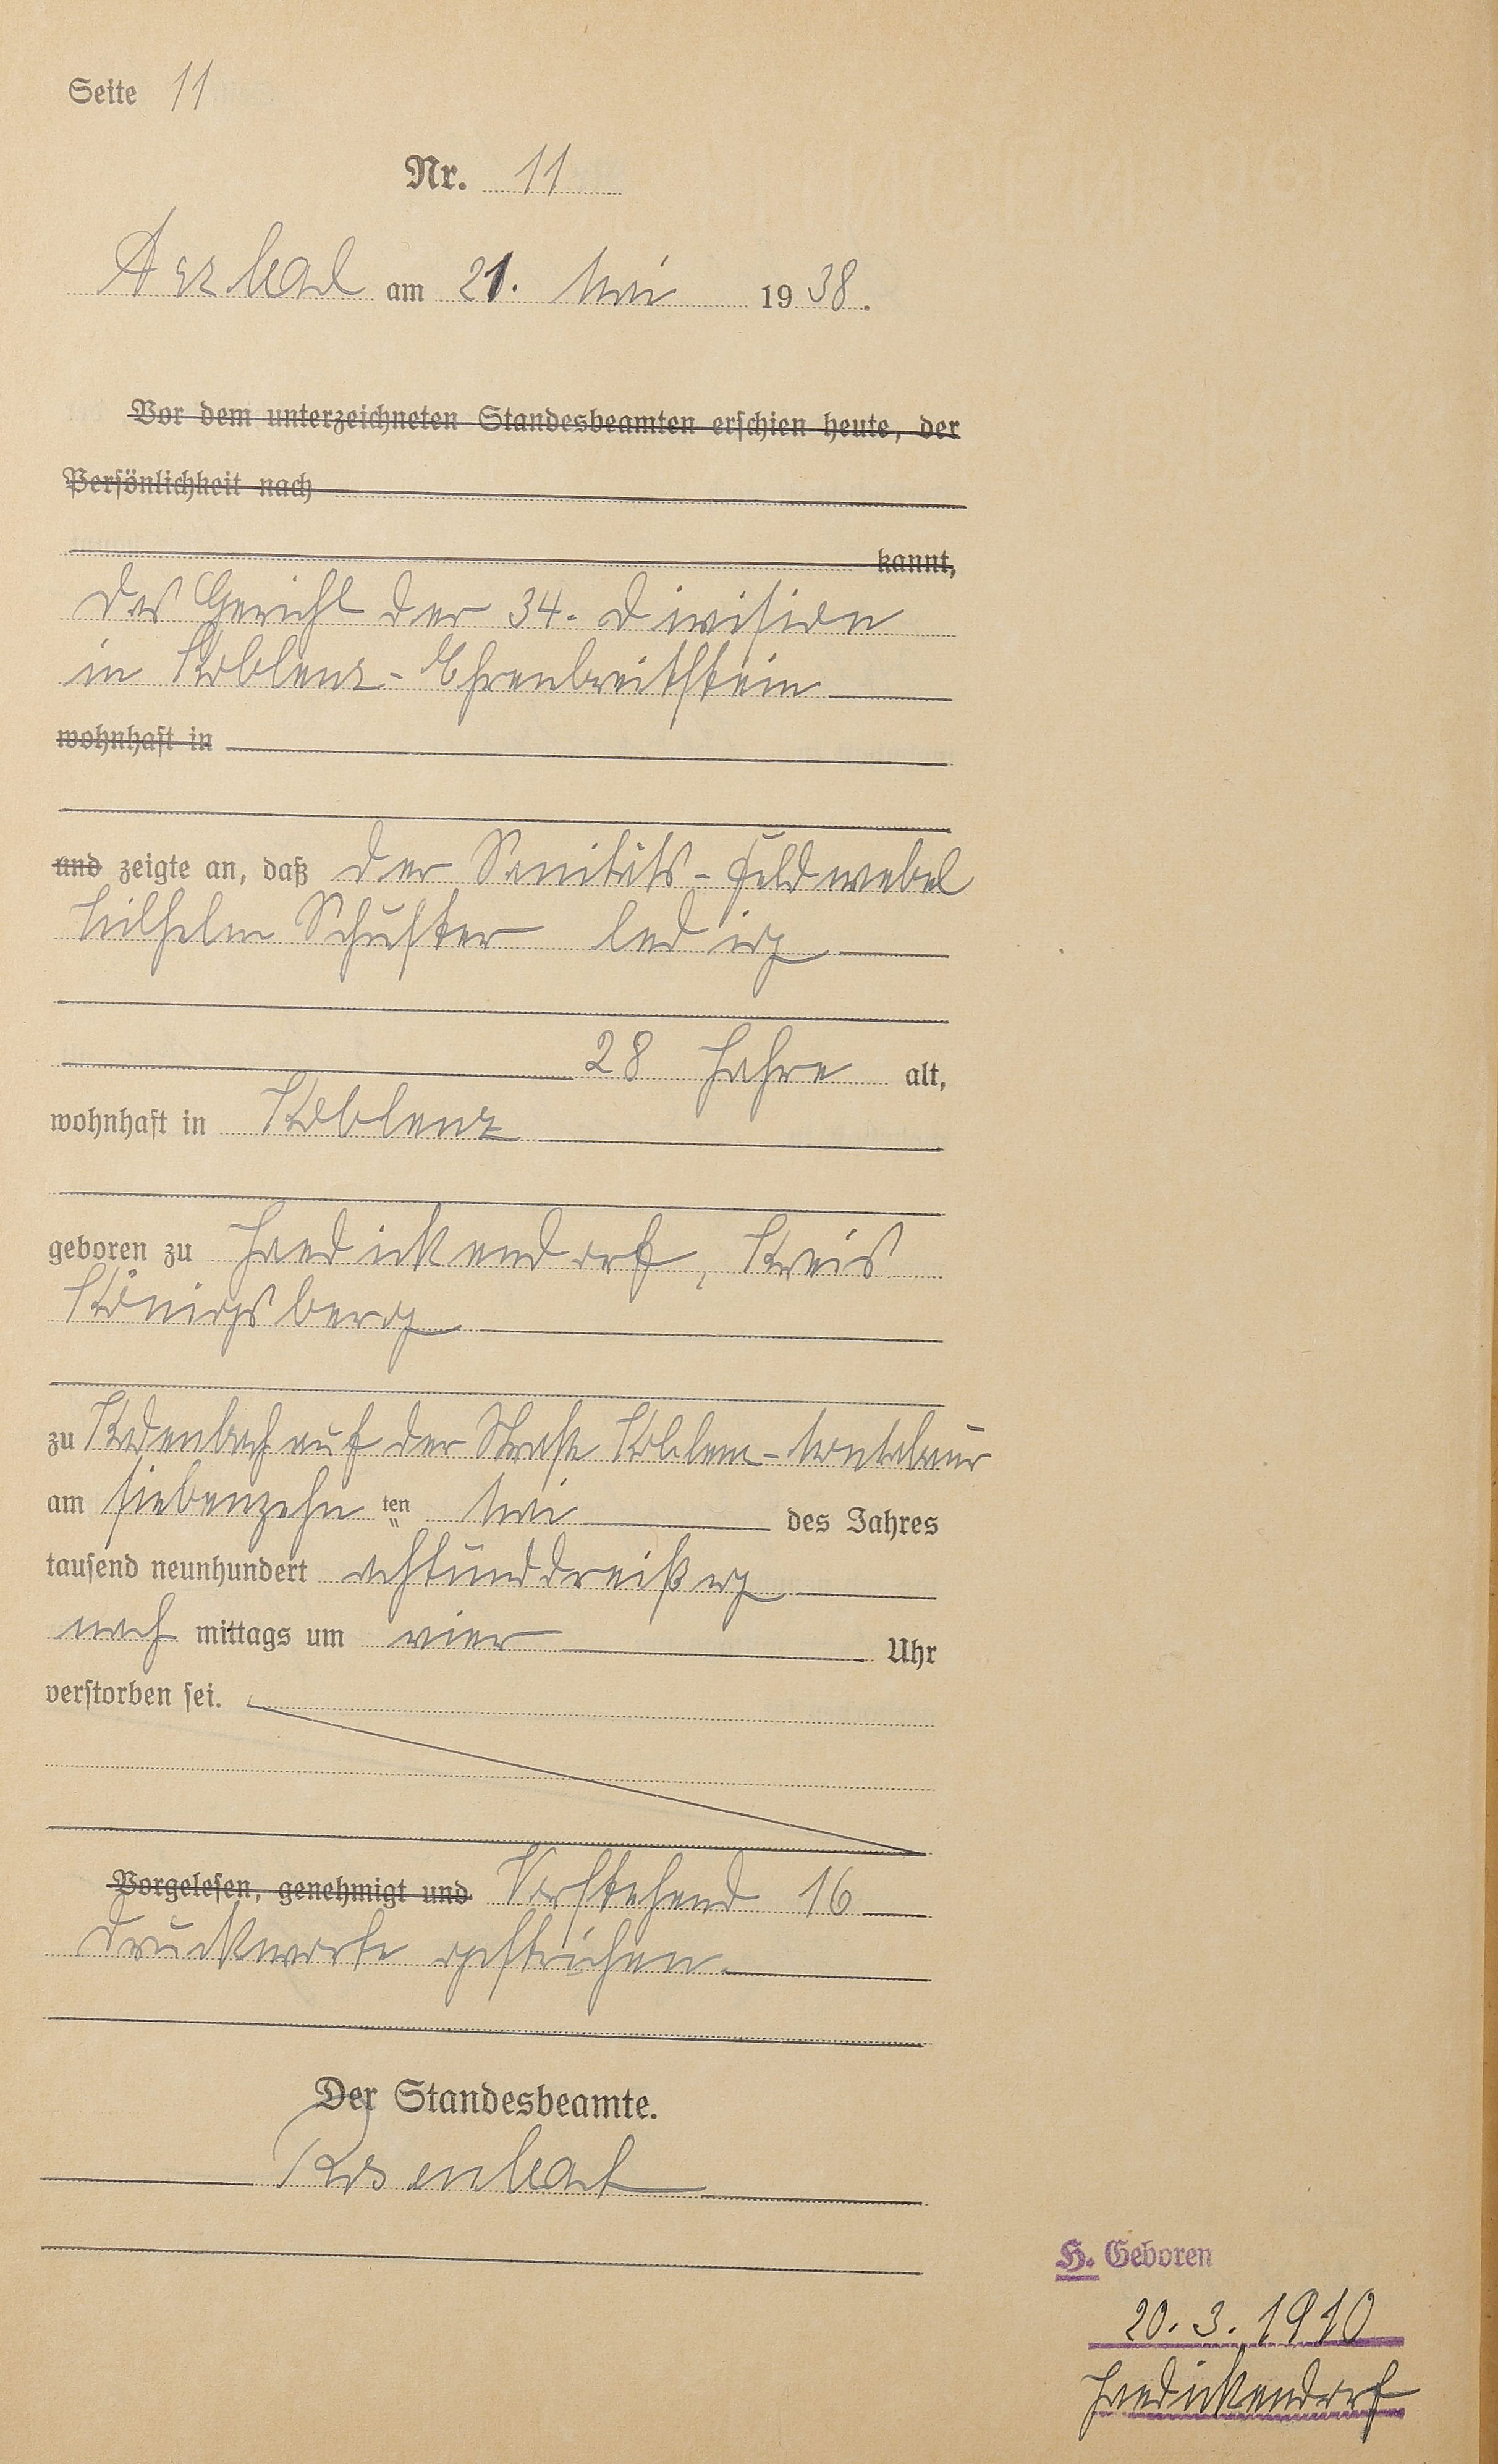 Seite 11
Nr. 11
Arzbach am 21. Mai 1938.
Vor dem unterzeichneten Standesbeamten erschien heute, der
Persönlichkeit nach
kannt,
Das Gericht der 34. Division
in Koblenz-Ehrenbreitstein
wohnhaft in
und zeigte an, daß der Sanitäts-Feldwebel
Wilhelm Schuster ledig
28 Jahre alt,
wohnhaft in Koblenz
geboren zu Jaedickendorf, Kreis
Königsberg
zu Kadenbach auf der Straße Koblenz-Montabaur
am siebenzehn ten Mai des Jahres
tausend neunhundert achtunddreißig
nach mittags um vier Uhr
verstorben sei.
Vorgelesen, genehmigt und Vorstehend 16
Druckworte gestrichen.
Der Standesbeamte.
Rosenbach
H. Geboren
20. 3. 1910
Jaedickendorf